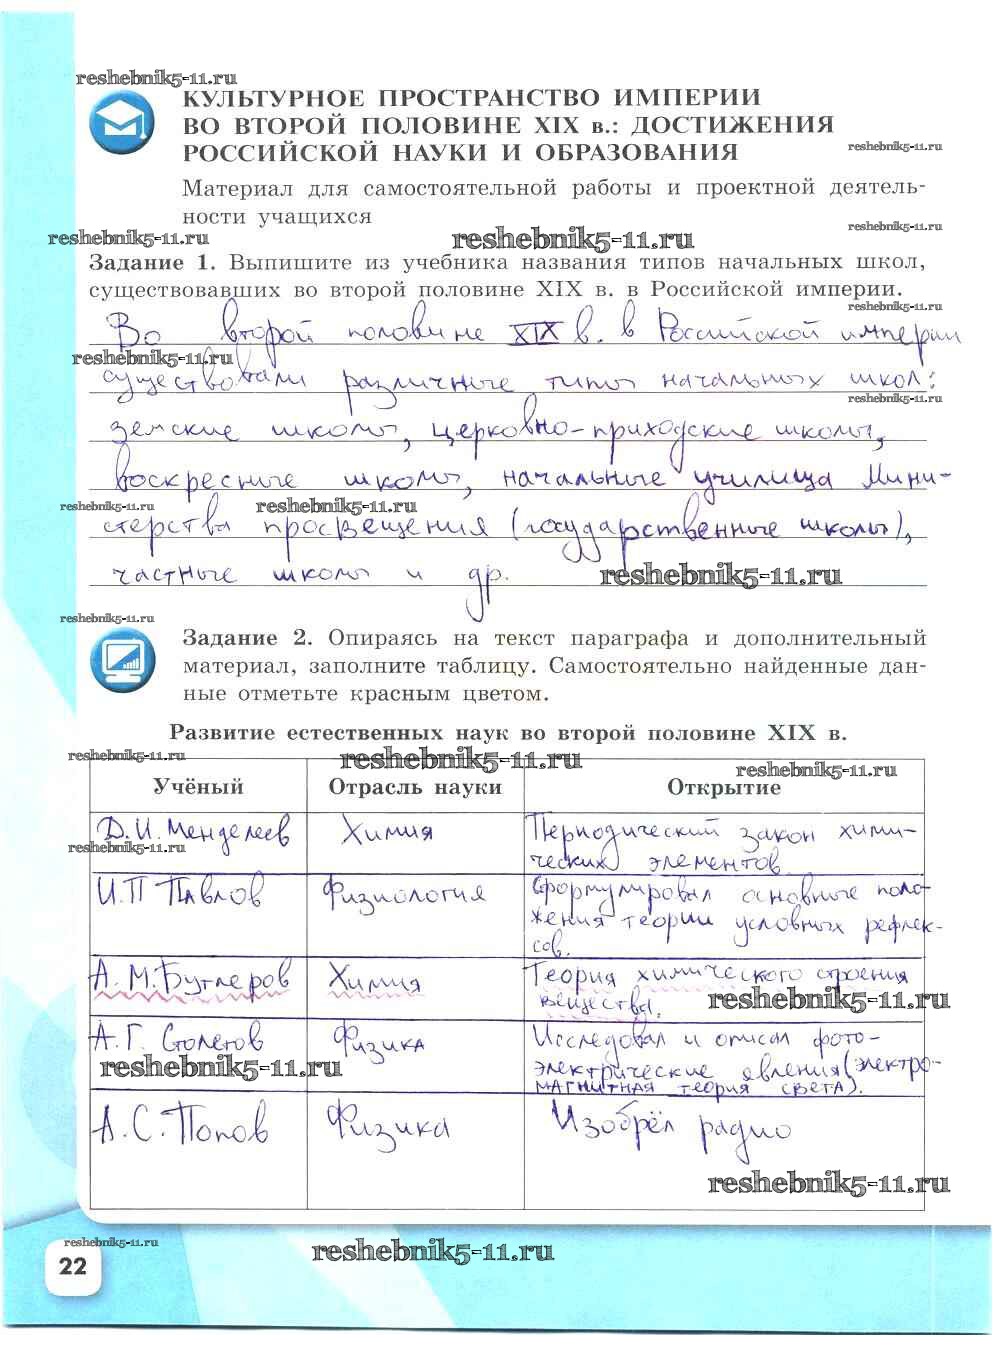 reshebnik5-11.ru
КУЛЬТУРНОЕ ПРОСТРАНСТВО ИМПЕРИИ
ВО ВТОРОЙ ПОЛОВИНЕ XIX в.: ДОСТИЖЕНИЯ
РОССИЙСКОЙ НАУКИ И ОБРАЗОВАНИЯ
reshebnik5-11.ru
Материал для самостоятельной работы и проектной деятель-
ности учащихся
reshebnik5-11.ru
reshebnik5-11.ru reshebnik5-11.ru
Задание 1. Выпишите из учебника названия типов начальных школ,
существовавших во второй половине XIX в. в Российской империи.
reshebnik5-11.ru
Во второй половине XIX в. в Российской империи
reshebnik5-11.ru
существовали различные типы начальных школ:
reshebnik5-11.ru
земские школы, церковно-приходские школы,
воскресные школы, начальные училища Мини-
reshebnik5-11.ru reshebnik5-11.ru
стерства просвещения (государственные школы),
частные школы и др.
reshebnik5-11.ru
reshebnik5-11.ru
Задание 2. Опираясь на текст параграфа и дополнительный
материал, заполните таблицу. Самостоятельно найденные дан-
ные отметьте красным цветом.
Развитие естественных наук во второй половине XIX в.
reshebnik5-11.ru reshebnik5-11.ru reshebnik5-11.ru
Учёный Отрасль науки Открытие
Д.И. Менделеев Химия Периодический закон хими-
ческих элементов
reshebnik5-11.ru
И.П Павлов Физиология Сформулировал основные поло-
жения теории условных рефлек-
сов.
А.М. Бутлеров Химия Теория химического строения
вещества.
reshebnik5-11.ru
А.Г. Столетов Физика Исследовал и описал фото-
электрические явления (электро-
магнитная теория света).
reshebnik5-11.ru
А.С. Попов Физика Изобрёл радио
reshebnik5-11.ru
reshebnik5-11.ru reshebnik5-11.ru
22